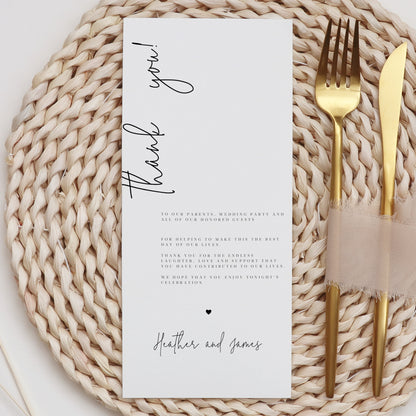 thank you!
TO OUR PARENTS, WEDDING PARTY AND
ALL OF OUR HONORED GUESTS
FOR HELPING TO MAKE THIS THE BEST
DAY OF OUR LIVES
THANK YOU FOR THE ENDLESS
LAUGHTER, LOVE AND SUPPORT THAT
YOU HAVE CONTRIBUTED TO OUR LIVES.
WE HOPE THAT YOU ENJOY TONIGHT'S
CELEBRATION.
Heather and James